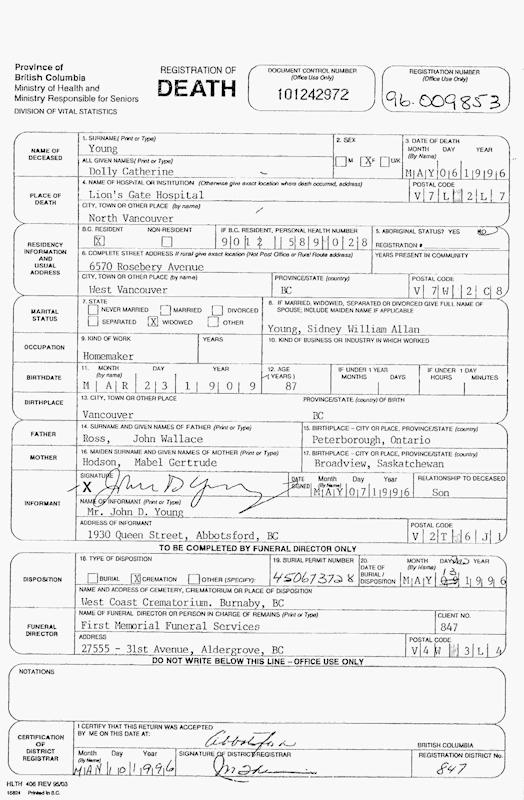 Province of
British Columbia
Ministry of Health and
Ministry Responsible for Seniors
DIVISION OF VITAL STATISTICS
REGISTRATION OF
DEATH
DOCUMENT CONTROL NUMBER
(Office Use Only)
101242972
REGISTRATION NUMBER
(Office Use Only)
96-009853
NAME OF DECEASED
1. SURNAME (Print or Type)
Young
2. SEX
M X F UK
3. DATE OF DEATH
MONTH (By Name) DAY YEAR
MAY 06 1996
ALL GIVEN NAMES (Print or Type)
Dolly Catherine
PLACE OF DEATH
4. NAME OF HOSPITAL OR INSTITUTION (Otherwise give exact location where death occurred, address)
Lion's Gate Hospital
POSTAL CODE
V7L 2L7
CITY, TOWN OR OTHER PLACE (by name)
North Vancouver
RESIDENCY INFORMATION AND USUAL ADDRESS
B.C. RESIDENT
X
NON-RESIDENT
IF B.C. RESIDENT, PERSONAL HEALTH NUMBER
9012 589 028
5. ABORIGINAL STATUS? YES NO
REGISTRATION #
6. COMPLETE STREET ADDRESS If rural give exact location (Not Post Office or Rural Route address)
6570 Rosebery Avenue
YEARS PRESENT IN COMMUNITY
CITY, TOWN OR OTHER PLACE (by name)
West Vancouver
PROVINCE/STATE (country)
BC
POSTAL CODE
V7W 2C8
MARITAL STATUS
7. STATE
NEVER MARRIED MARRIED DIVORCED
SEPARATED X WIDOWED OTHER
8. IF MARRIED, WIDOWED, SEPARATED OR DIVORCED GIVE FULL NAME OF SPOUSE; INCLUDE MAIDEN NAME IF APPLICABLE
Young, Sidney William Allan
OCCUPATION
9. KIND OF WORK YEARS
Homemaker
10. KIND OF BUSINESS OR INDUSTRY IN WHICH WORKED
BIRTHDATE
11. MONTH (by name) DAY YEAR
MAR 23 1909
12. AGE (YEARS)
87
IF UNDER 1 YEAR
MONTHS DAYS
IF UNDER 1 DAY
HOURS MINUTES
BIRTHPLACE
13. CITY, TOWN OR OTHER PLACE
Vancouver
PROVINCE/STATE (country) OF BIRTH
BC
FATHER
14. SURNAME AND GIVEN NAMES OF FATHER (Print or Type)
Ross, John Wallace
15. BIRTHPLACE - CITY OR PLACE, PROVINCE/STATE (country)
Peterborough, Ontario
MOTHER
16. MAIDEN SURNAME AND GIVEN NAMES OF MOTHER (Print or Type)
Hodson, Mabel Gertrude
17. BIRTHPLACE - CITY OR PLACE, PROVINCE/STATE (country)
Broadview, Saskatchewan
INFORMANT
SIGNATURE
X John D Young
DATE SIGNED
Month (By Name) Day Year
MAY 07 1996
RELATIONSHIP TO DECEASED
Son
NAME OF INFORMANT (Print or Type)
Mr. John D. Young
ADDRESS OF INFORMANT
1930 Queen Street, Abbotsford, BC
POSTAL CODE
V2T 6J1
TO BE COMPLETED BY FUNERAL DIRECTOR ONLY
DISPOSITION
18. TYPE OF DISPOSITION
BURIAL X CREMATION OTHER (SPECIFY)
19. SURIAL PERMIT NUMBER
450673728
20. DATE OF BURIAL / DISPOSITION
MONTH (By Name) DAY YEAR
MAY 13 1996
NAME AND ADDRESS OF CEMETERY, CREMATORIUM OR PLACE OF DISPOSITION
West Coast Crematorium. Burnaby, BC
FUNERAL DIRECTOR
NAME OF FUNERAL DIRECTOR OR PERSON IN CHARGE OF REMAINS (Print or Type)
First Memorial Funeral Services
CLIENT NO.
847
ADDRESS
27555 - 31st Avenue, Aldergrove, BC
POSTAL CODE
V4W 3L4
DO NOT WRITE BELOW THIS LINE - OFFICE USE ONLY
NOTATIONS
CERTIFICATION OF DISTRICT REGISTRAR
I CERTIFY THAT THIS RETURN WAS ACCEPTED
BY ME ON THIS DATE AT:
Abbotsford
BRITISH COLUMBIA
Month (By Name) Day Year
MAY 10 1996
SIGNATURE OF DISTRICT REGISTRAR
REGISTRATION DISTRICT No.
847
HLTH 406 REV 95/03
15824 Printed in B.C.